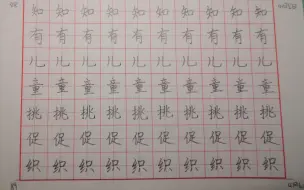 知知知知知知知知知知
有有有有有有有有有有
儿儿儿儿儿儿儿儿儿儿
童童童童童童童童童童
挑挑挑挑挑挑挑挑挑挑
促促促促促促促促促促
织织织织织织织织织织